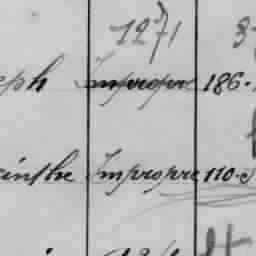 1271 3
eph Impropre 186.
cinthe Impropre 110.5